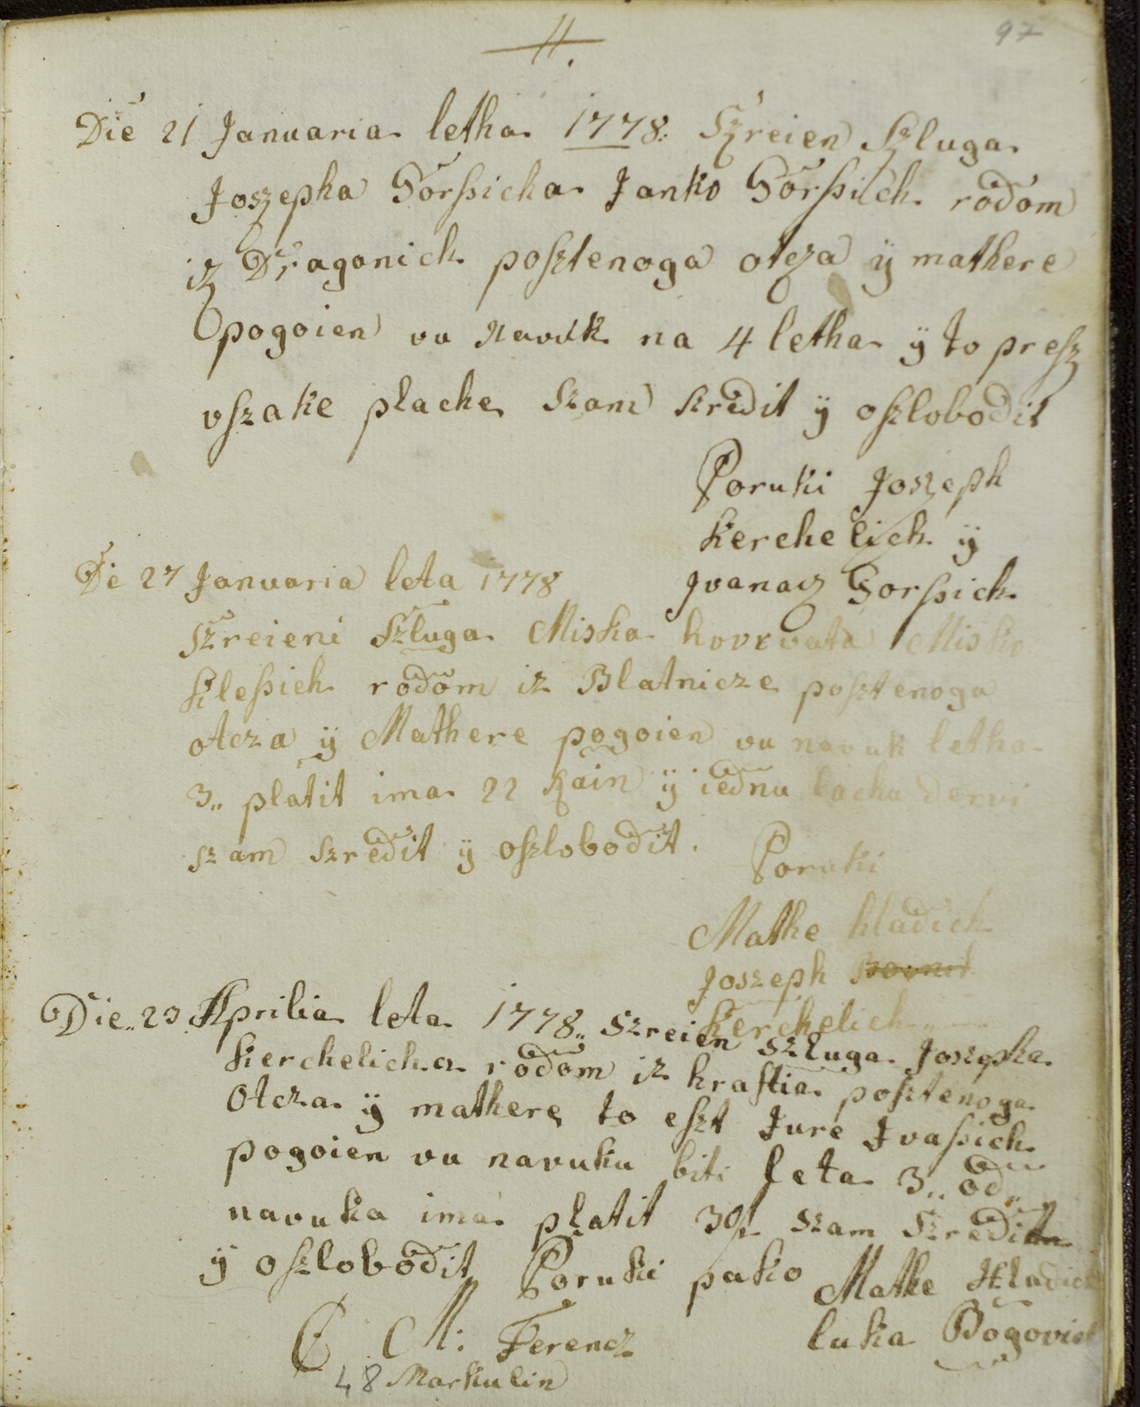 11.
97
Die 21 Januaria letha 1778: Szreien Szluga
Joszepha Gorßicha Janko Gorßich rodom
iz Draganich posztenoga otcza ÿ mathere
pogoien vu navuk na 4 letha ÿ to presz
vszake plache szam szredit ÿ oszlobodit
Poruki Joszeph
Kerchelich ÿ
Ivanacz Gorßich
Die 27 Januaria leta 1778
Szreieni Szluga Miska horvata Misko
Kleßich rodom iz Blatnicze posztenoga
otcza ÿ Mathere pogoien vu navuk letha
3,, platit ima 22 Rain ÿ iednu lachu dervi
szam szredit ÿ oszlobodit.
Poruki
Matke hladich
Joszeph
Kerchelich
Die 23 Aprilia leta 1778,, szreien szluga Joszepha
Kerchelicha rodom iz hrastia posztenoga
Otcza ÿ mathere to eszt Jure Jvaßich
pogoien vu navuku biti leta 3,, od
navuka ima platit 30f szam szredit
ÿ oszlobodit Poruki pako Matke Hladich
luka Bogovich
C M: Ferencz
48 Markulin